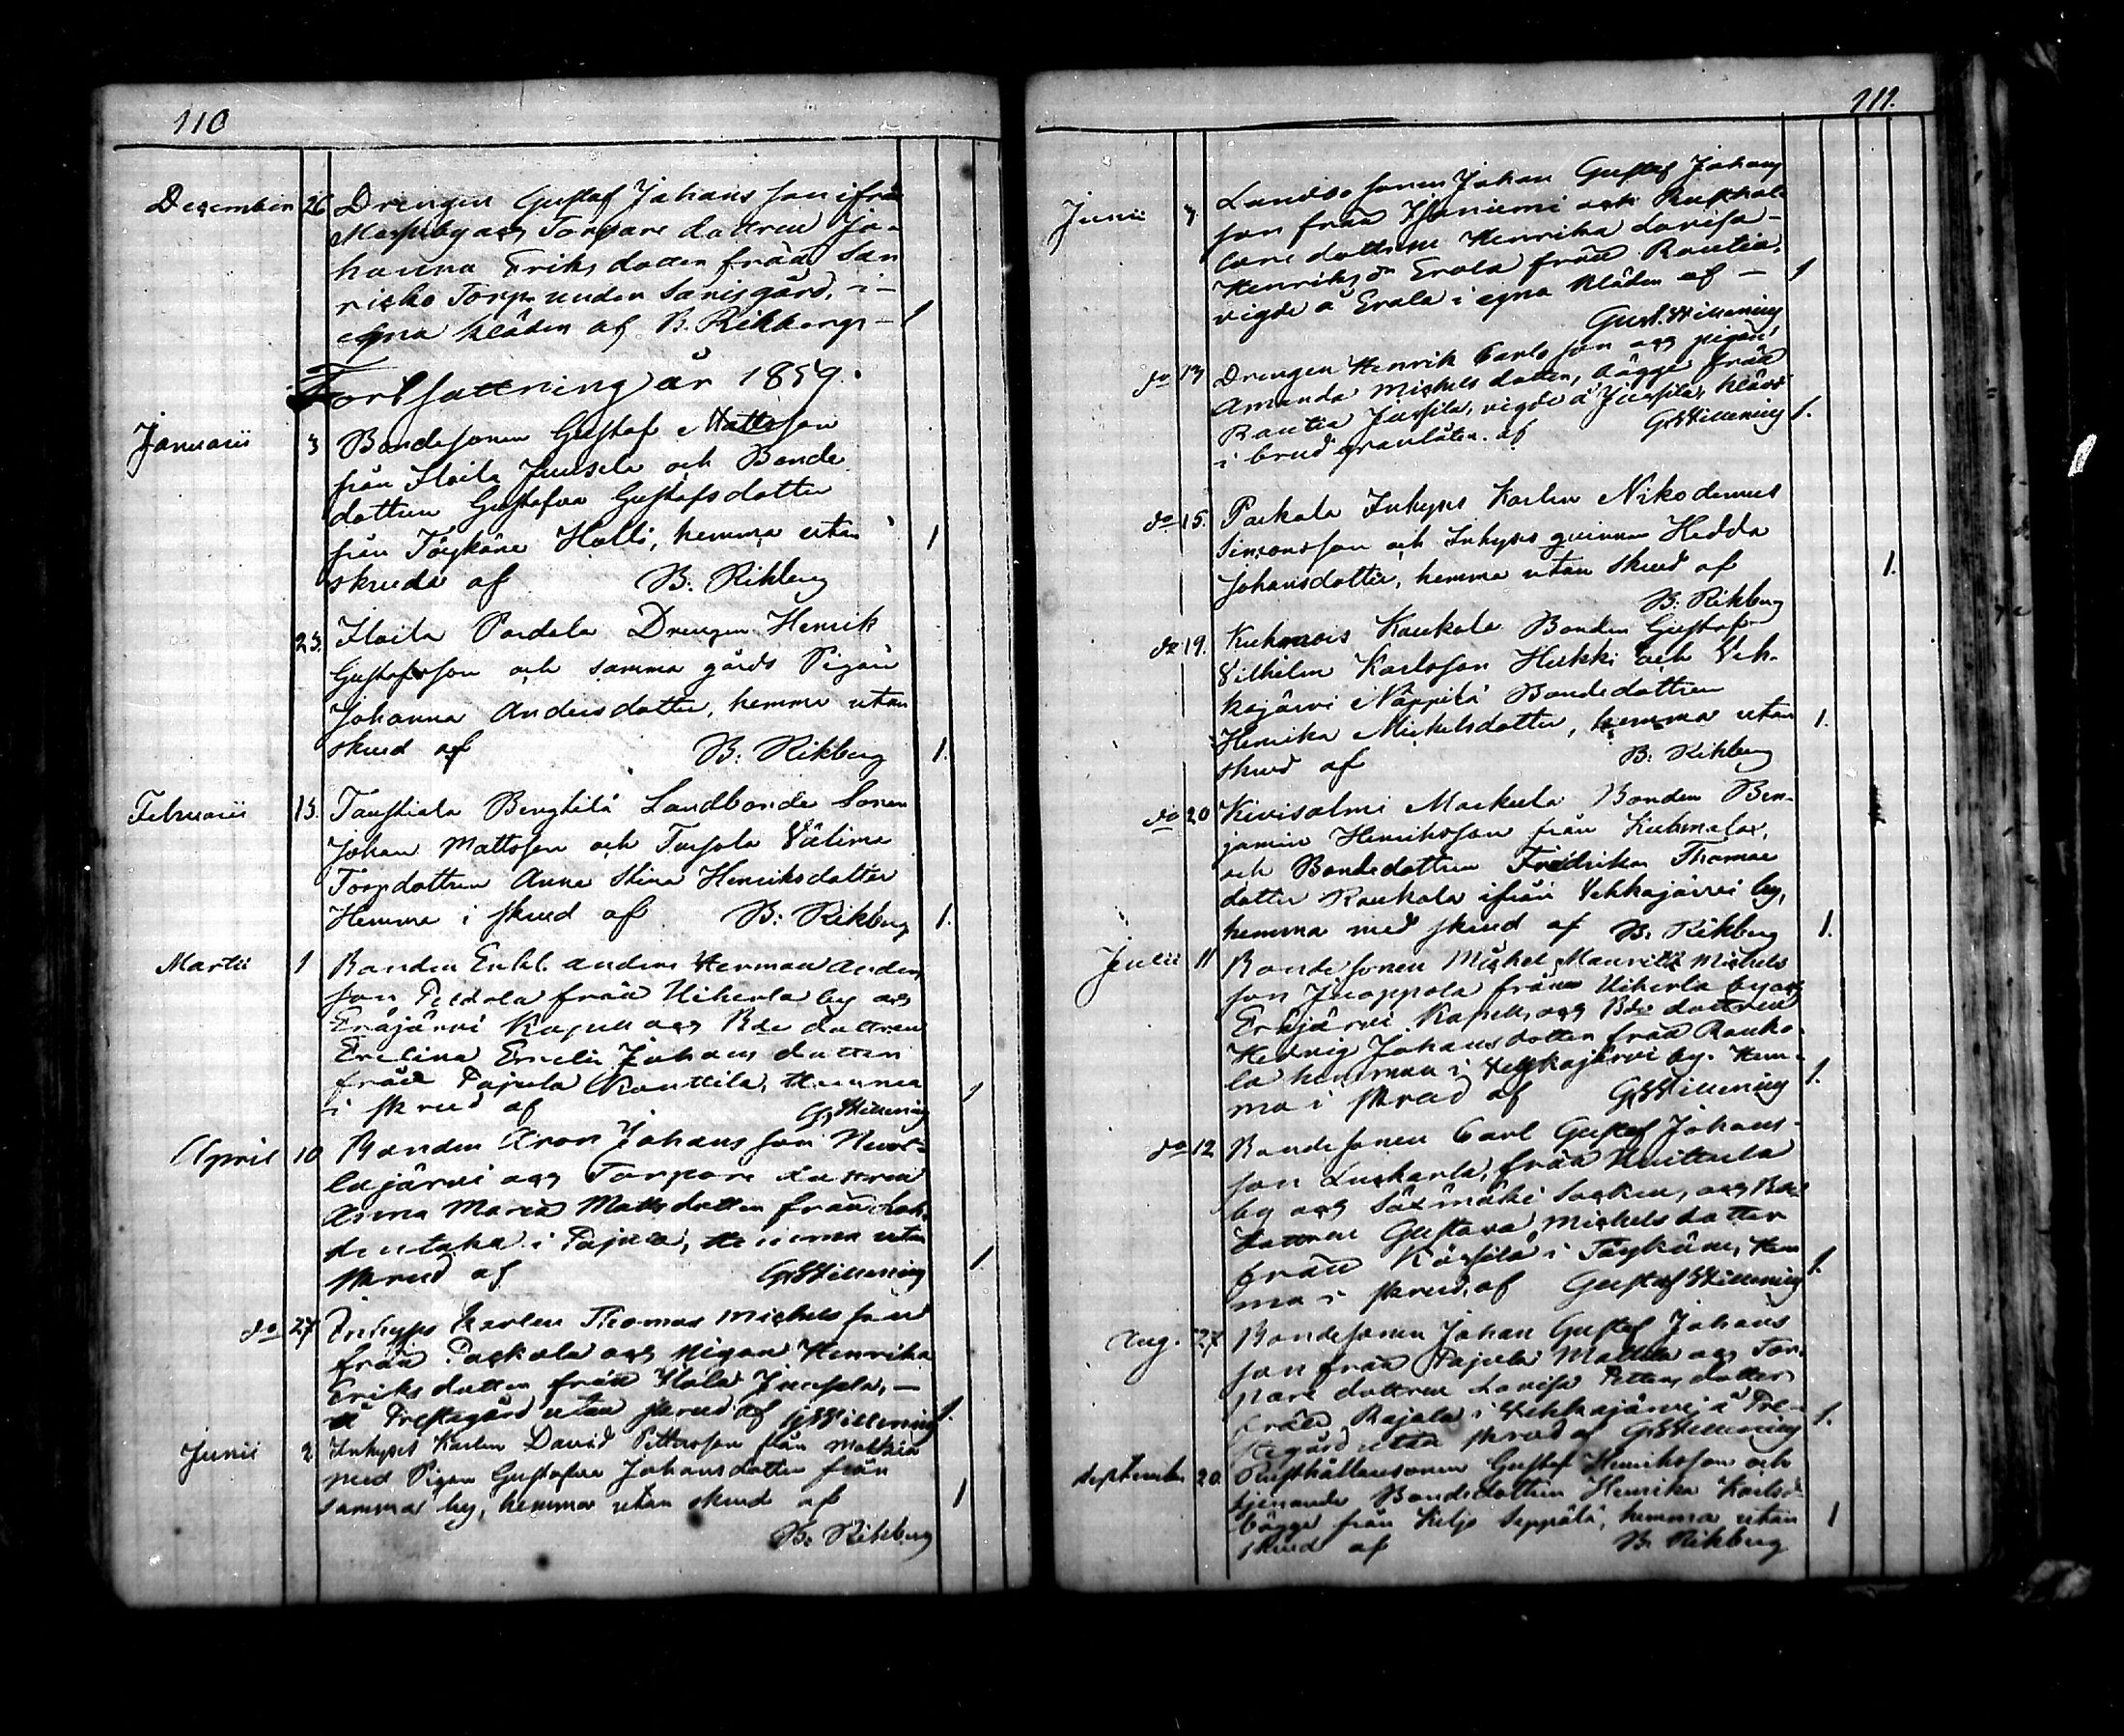 110
December 26 Drengen Gustaf Johansson ifrån
by och Torpare dottren Jo-
hanna Eriksdotter från Sau
risko Torp under Sarisgård, i
egna kläder af B. Rikberg 1
Fortsättning år 1859.
Januarii 3 Bondesonen Gustaf Mattsson
från Iltoila Juusela och Bonde
dottren Gustafva Gustafsdotter
från Töykäne Halli, hemma utan
skruda af B. Rikberg 1
23. Pardala Drengen Henrik
Gustafsson och samma gårds Pigan
Johanna Andersdotter, hemma utan
skrud af B. Rikberg 1.
Februarii 13. Taustiala Benghtilä Landbonde Sonen
Johan Mattsson och Välima
Torpdottren Anna Stina Henriksdotter
Hemma i skrud af B: Rikberg 1.
Martii 1 Bonden Enkl. Anders Herman Anders
son från Uiherla by och
Eräjärvi Kapell och Bde dottren
Emelie Johans dotter
från Pajula Kauttila, Hemma
i skrud af G. Willening 1
April 10 Bonden Aron Johansson
lajärvi och Torpare dottren
Anna Maria Mattsdotter från
i Pajula, Hemma utan
skrud af G. Willening 1
do 27 Inhyses Karlen Thomas Michelsson
från Packala och Pigan Henrika
Eriksdotter från
å Prestegård utan skrud af G. Willening 1.
Junii 2 Inhyses Karlen David Pettersson från Mattila
med Pigan Gustafva Johansdotter från
samma by, hemma utan skrud af 1
B. Rikberg
111.
Junii 7. Landbo sonen Johan Gustaf Johans
son från och Rusthål
lare dottren Henrika Lovisa
Henriksdr Erola från Rautia,
vigde å Erola i egna kläder af 1
Gust. Willening
do 13 Drengen Henrik Carlsson och pigan
Amanda Michelsdotter, bägge från
Rautia Jussila, vigde å Jussila, klädd
i brud grannlåten. af G. Willening 1.
do 15. Packala Inhyses Karlen Nikodemus
Simonsson och Inhyses qvinnan Hedda
Johansdotter, hemma utan skrud af 1.
B. Rikberg
do 19. Kuhmois Kaukola Bonden Gustaf
Vilhelm Karlsson Hukki och Veh-
kajärvi Näppilä Bondedottren
Henrika Mickelsdotter, hemma utan 1.
skrud af B. Rikberg
do 20 Kivisalmi Markula Bonden Ben-
jamin Henriksson från Kuhmalax,
och Bondedottren Fredrika Thomas
dotter Raukola ifrån Vehkajärvi by,
hemma med skrud af B. Rikberg 1.
Julii 11 Bonde sonen Michel Mauritz Michels
son Juoppola från Uiherla by och
Eräjärvi Kapell, och Bde dottren
Hedvig Johansdotter från Rauko-
la hemman i Vehkajärvi by. Hem-
ma i skrud af G. Willening 1.
do 12 Bondesonen Carl Gustaf Johans-
son från Huittula
by och Säxmäki Socken, och Bde
dottren Gustava Michelsdotter
från i Töykäne, Hem
ma i skrud, af Gustaf Willening 1.
Aug. 27 Bondesonen Johan Gustaf Johans
son från Pajula Mattila och Tor-
pare dottren Lovisa Petters dotter
från Rajala i Vehkajärvi å Pre-
stegård utan skrud af G. Willening 1.
September 20. Rusthållaresonen Gustaf Henriksson och
tjenande Bondedottren Henrika Karlsdr
bägge från Keljo Seppälä, hemma utan 1
skrud af B. Rikberg